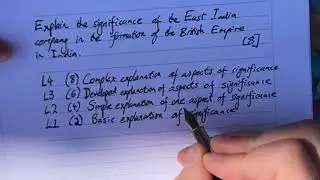 Explain the significance of the East India
company in the formation of the British Empire
in India. [8]
L4 (8) Complex explanation of aspects of significance
L3 (6) Developed explanation of aspects of significance
L2 (4) Simple explanation of one aspect of significance
L1 (2) Basic explanation of significance